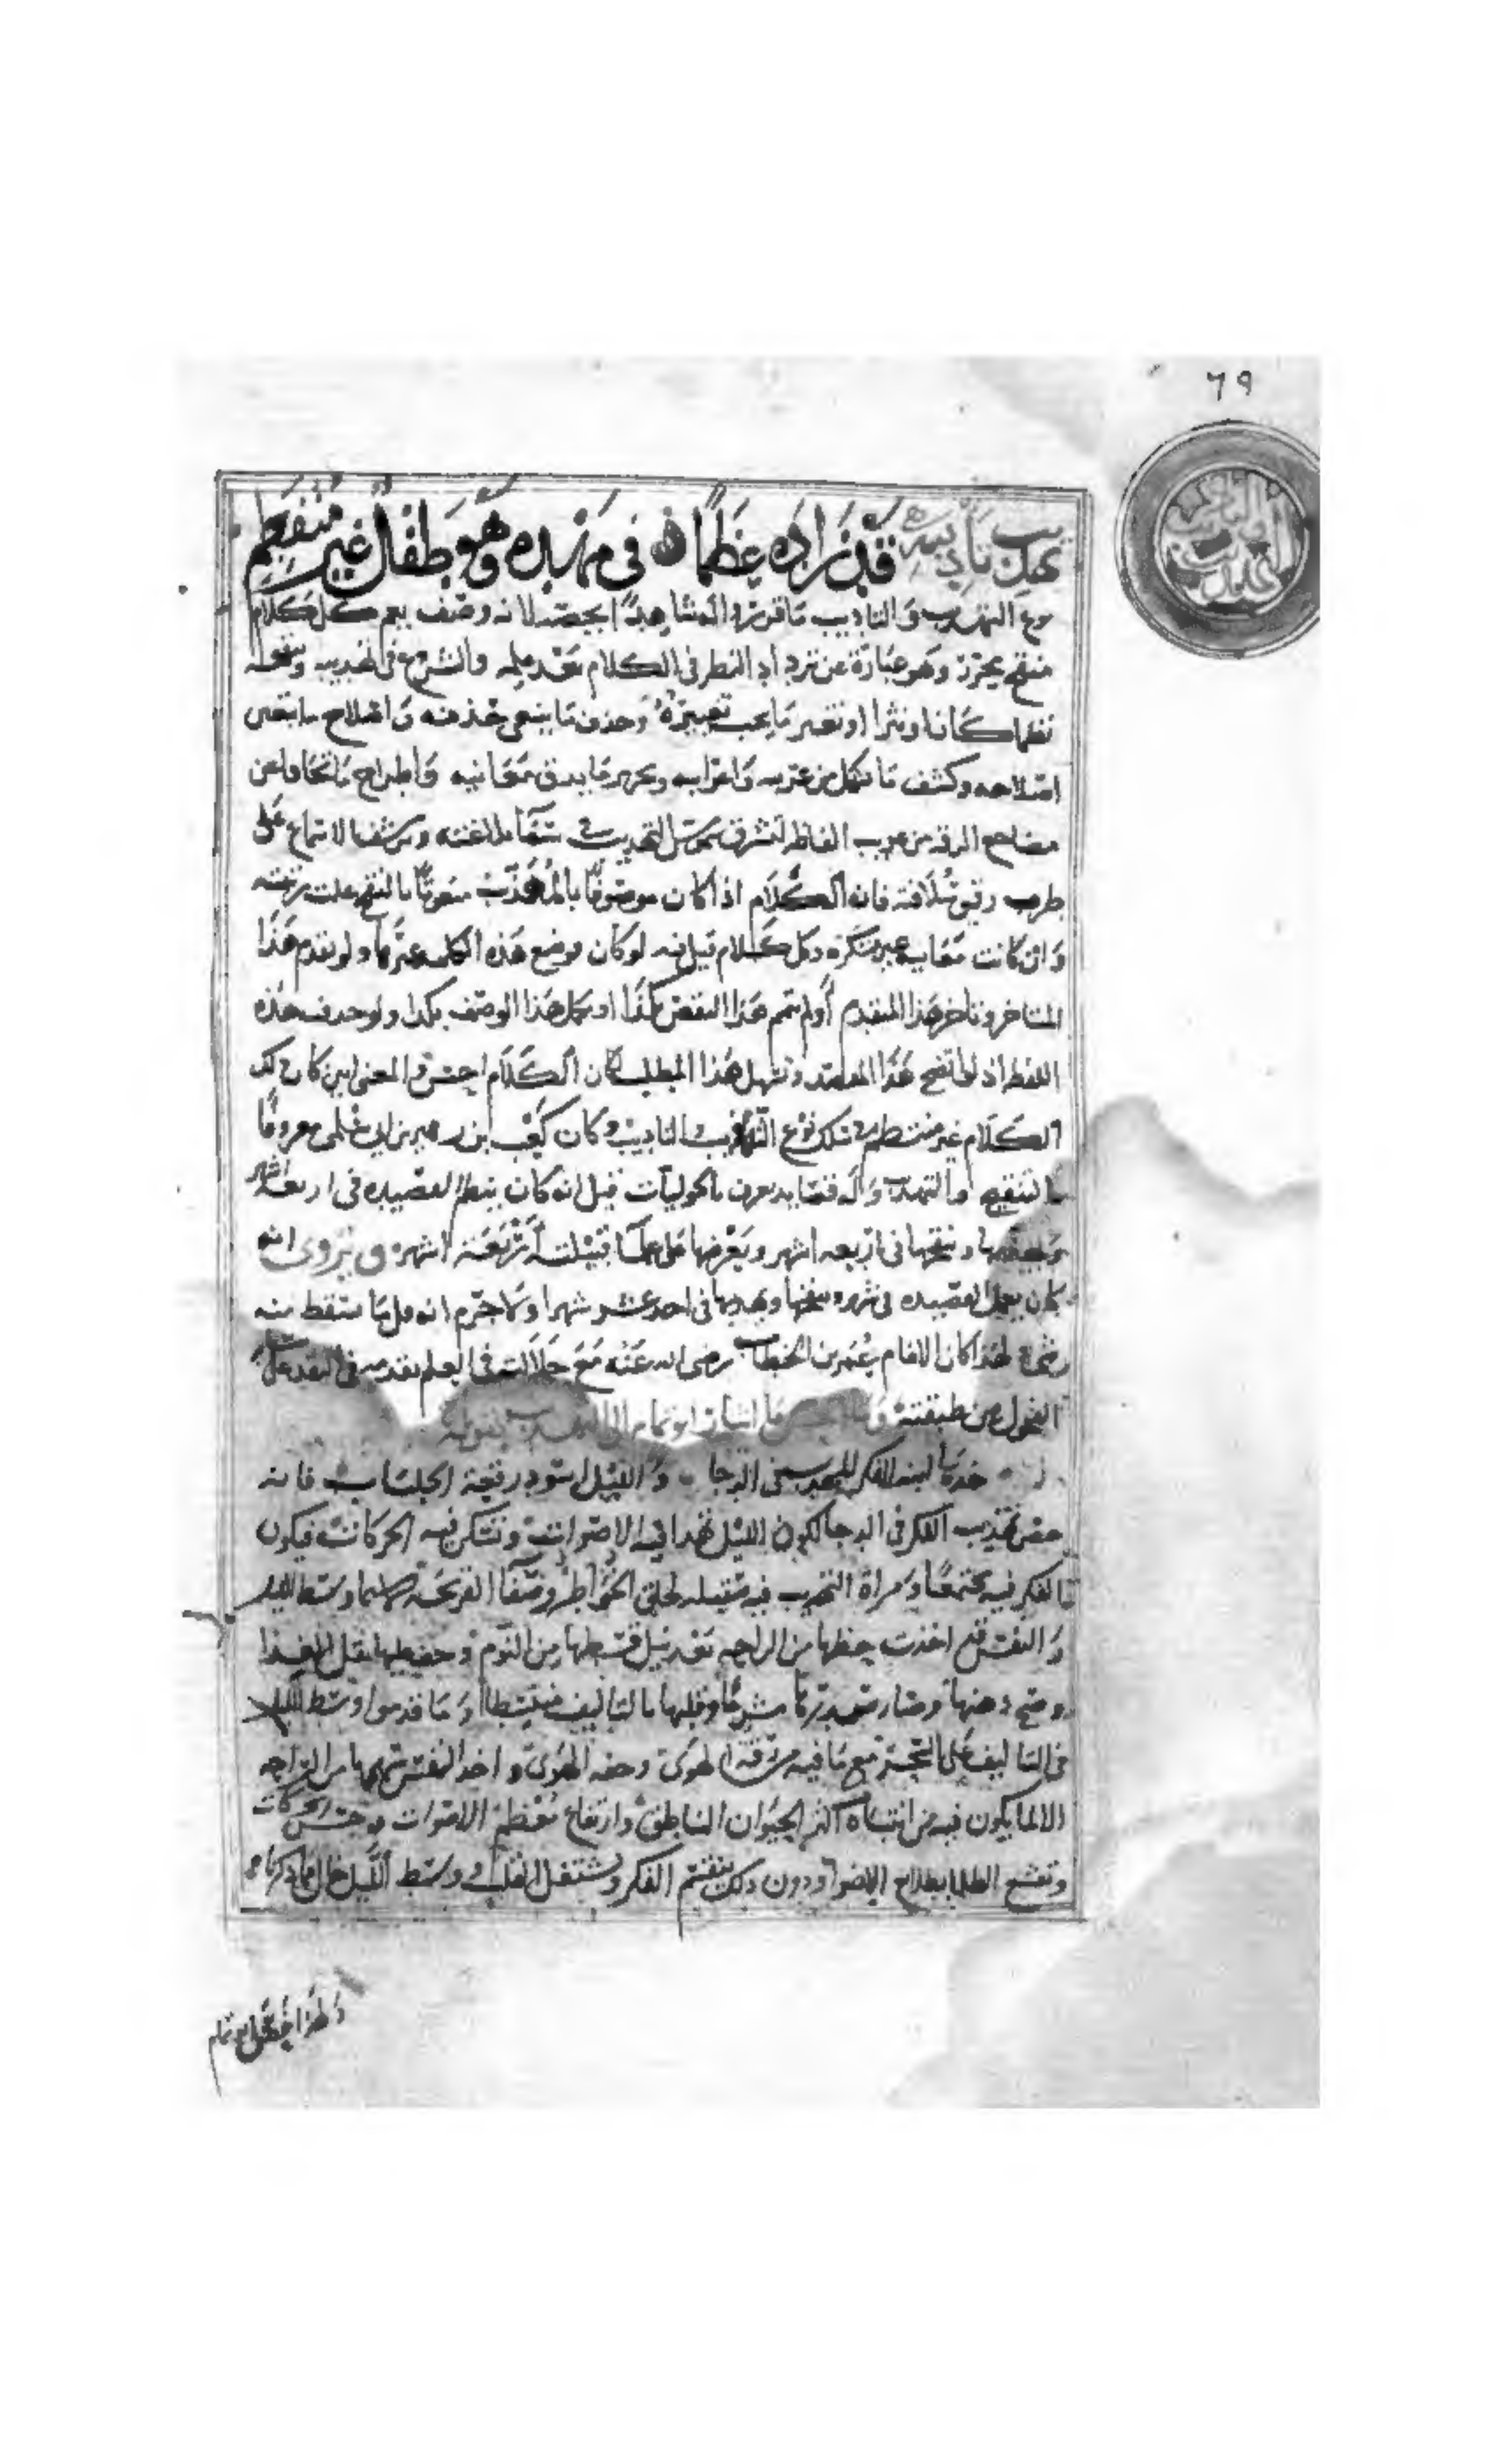 ٦٩
تهذيب تأديبه قد زاده عظما في مهده وهو طفل غير منفطم
نوع التهذيب والتأديب ما قرروا له شاهدا يخصه لانه وصف يعم كل كلام
منقح محرر وهو عبارة عن ترداد النظر في الكلام بعد عمله والشروع في تهذيبه وتنقيحه
نظما كان او نثرا او تغيير ما يجب تغييره وحذف ما ينبغي حذفه واصلاح ما يتعين
اصلاحه وكشف ما يشكل من غريبه واعرابه وتحرير ما يدق من معانيه واطراح ما تجافا عن
مضاجع الرقه من غريب الفاظه لتشرق شموس التهذيب في سماء بلاغته وترشف الاسماع على
طرب رقيق سلافته فان الكلام اذا كان موصوفا بالمهذب منعوتا بالمنقح علت رتبته
وان كانت معانيه غير مبتكره وكل كلام قيل فيه لو كان موضع هذه الكلمه غيرها ولو تقدم هذا
المتاخر وتاخر هذا المتقدم او لو تمم هذا النقص بكذا او تكمل هذا الوصف بكذا ولو حذفت هذه
اللفظه او لو اتضح هذا المقصد وتسهل هذا المطلب لكان الكلام احسن والمعنى ابين كان ذلك
الكلام غير منتظم في سلك نوع التهذيب والتاديب وكان كعب ابن زهير بن ابي سلمى معروفا
بالتنقيح والتهذيب وله قصايد تعرف بالحوليات قيل انه كان ينظم القصيده في اربعه اشهر
ويهذبها وينقحها في اربعه اشهر ويعرضها على علماء قبيلته اربعة اشهر ويروى انه
كان يعمل القصيده في شهر وينقحها ويهذبها في احد عشر شهرا ولا جرم انه قل ما يسقط منه
شيء لهذا كان الامام عمر بن الخطاب رضي الله عنه مع جلالته في العلم يقدمه في النقد على
الفحول من طبقته وما احسن ما اشار ابو تمام الى التهذيب بقوله
خذها ابنة الفكر المهذب في الدجا والليل اسود رقعة الجلباب فانه
خص تهذيب الفكر في الدجا لكون الليل تهدا فيه الاصوات وتسكن فيه الحركات فيكون
الفكر فيه مجتمعا ومرآة التهذيب فيه صقيله لخلو الخواطر وصفاء القريحه لا سيما وسط الليل
والنفس قد اخذت حظها من الراحه بعد نيل قسطها من النوم وخف عليها ثقل الغذا
وصح ذهنها وصار صدرها مشرحا وقلبها بالتاليف منبسطا وما قدموا وسط الليل
في التاليف على السحر مع ما فيه من رقة الهوى وخفة الهوى واخذ النفس سهمها من الراحه
الا لما يكون فيه من انتباه اكثر الحيوان الناطق وارتفاع معظم الاصوات وجرس الحركات
وتقشع الظلما بطلايع الاضوا ودون ذلك ينقسم الفكر ويشتغل القلب ووسط الليل خال مما ذكرناه
ولهذا خص ابو تمام